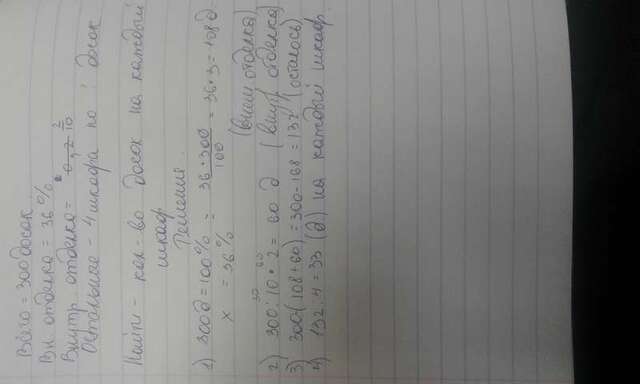 Всего = 300 досок
Вн отделка = 36%
Внутр. отделка = 2/10
Остальные - 4 шкафа по ? досок
Найти - кол-во досок на каждый
шкаф
Решение.
1) 300д = 100% = 36 * 300 / 100 = 36 * 3 = 108 д
х = 36%
(внеш отделка)
30 60
2) 300 : 10 * 2 = 60 д (внутр отделка)
3) 300 - (108 + 60) = 300 - 168 = 132 (осталось)
4) 132 : 4 = 33 (д) на каждый шкаф.